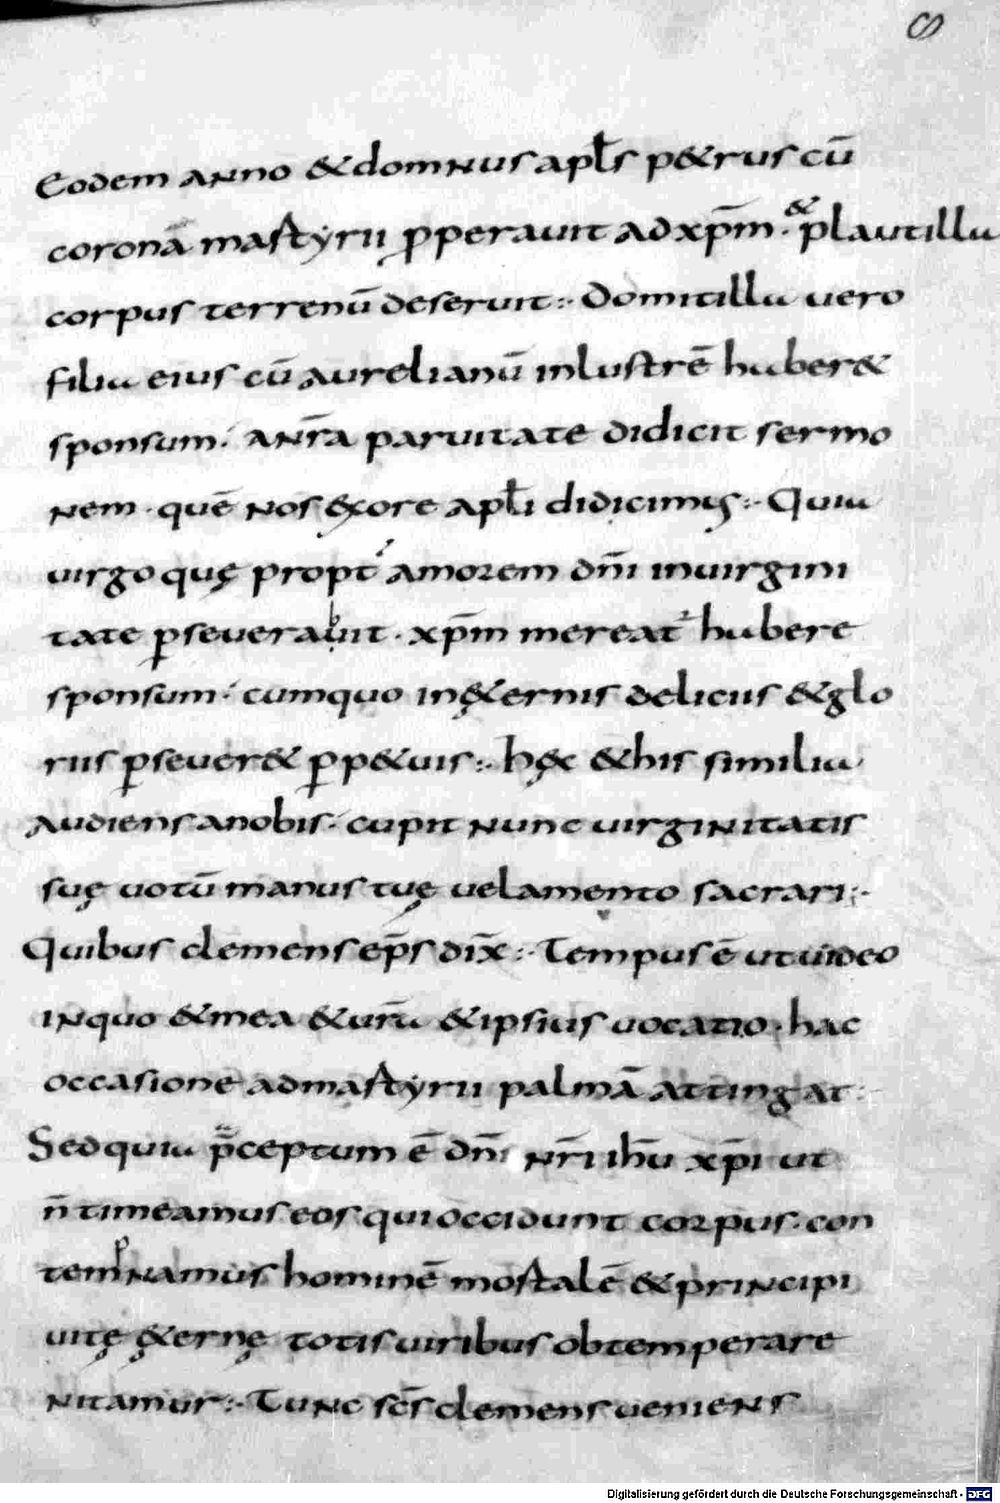 8
Eodem anno & domnus apłs p&rus cū
coronā martyrii pperauit ad xp̄m · & plautilla
corpus terrenū deseruit :· Domitilla uero
filia eius cū aurelianū inlustrē haber&
sponsum · a nr̄a paruitate didicit sermo
nem · quē nos ex ore apłi didicimus :· Quia
uirgo quę propt' amorem dn̄i in uirgini
tate pseuerauit · xp̄m mereat' habere
sponsum · cum quo in ę&ernis deliciis & glo
riis pseuer& pp&uis :· hęc & his similia
audiens a nobis · cupit nunc uirginitatis
suę uotū manus tuę uelamento sacrari :·
Quibus clemens ep̄s dix̄ :· Tempus ē ut uideo
in quo & mea & ur̄a & ipsius uocatio · hac
occasione ad martyrii palmā attingat :
Sed quia p̄ceptum ē dn̄i nr̄i ih̄u xp̄i ut
n̄ timeamus eos qui occidunt corpus · con
temnamus hominē mortalē & principi
uitę ę&ernę totis uiribus obtemperare
nitamur :· Tunc sc̄s clemens ueniens
Digitalisierung gefördert durch die Deutsche Forschungsgemeinschaft - DFG